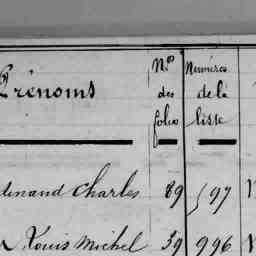 Prénoms
Nos des folios
Numéros de la liste
dinand Charles 89 597
Louis Michel 59 996